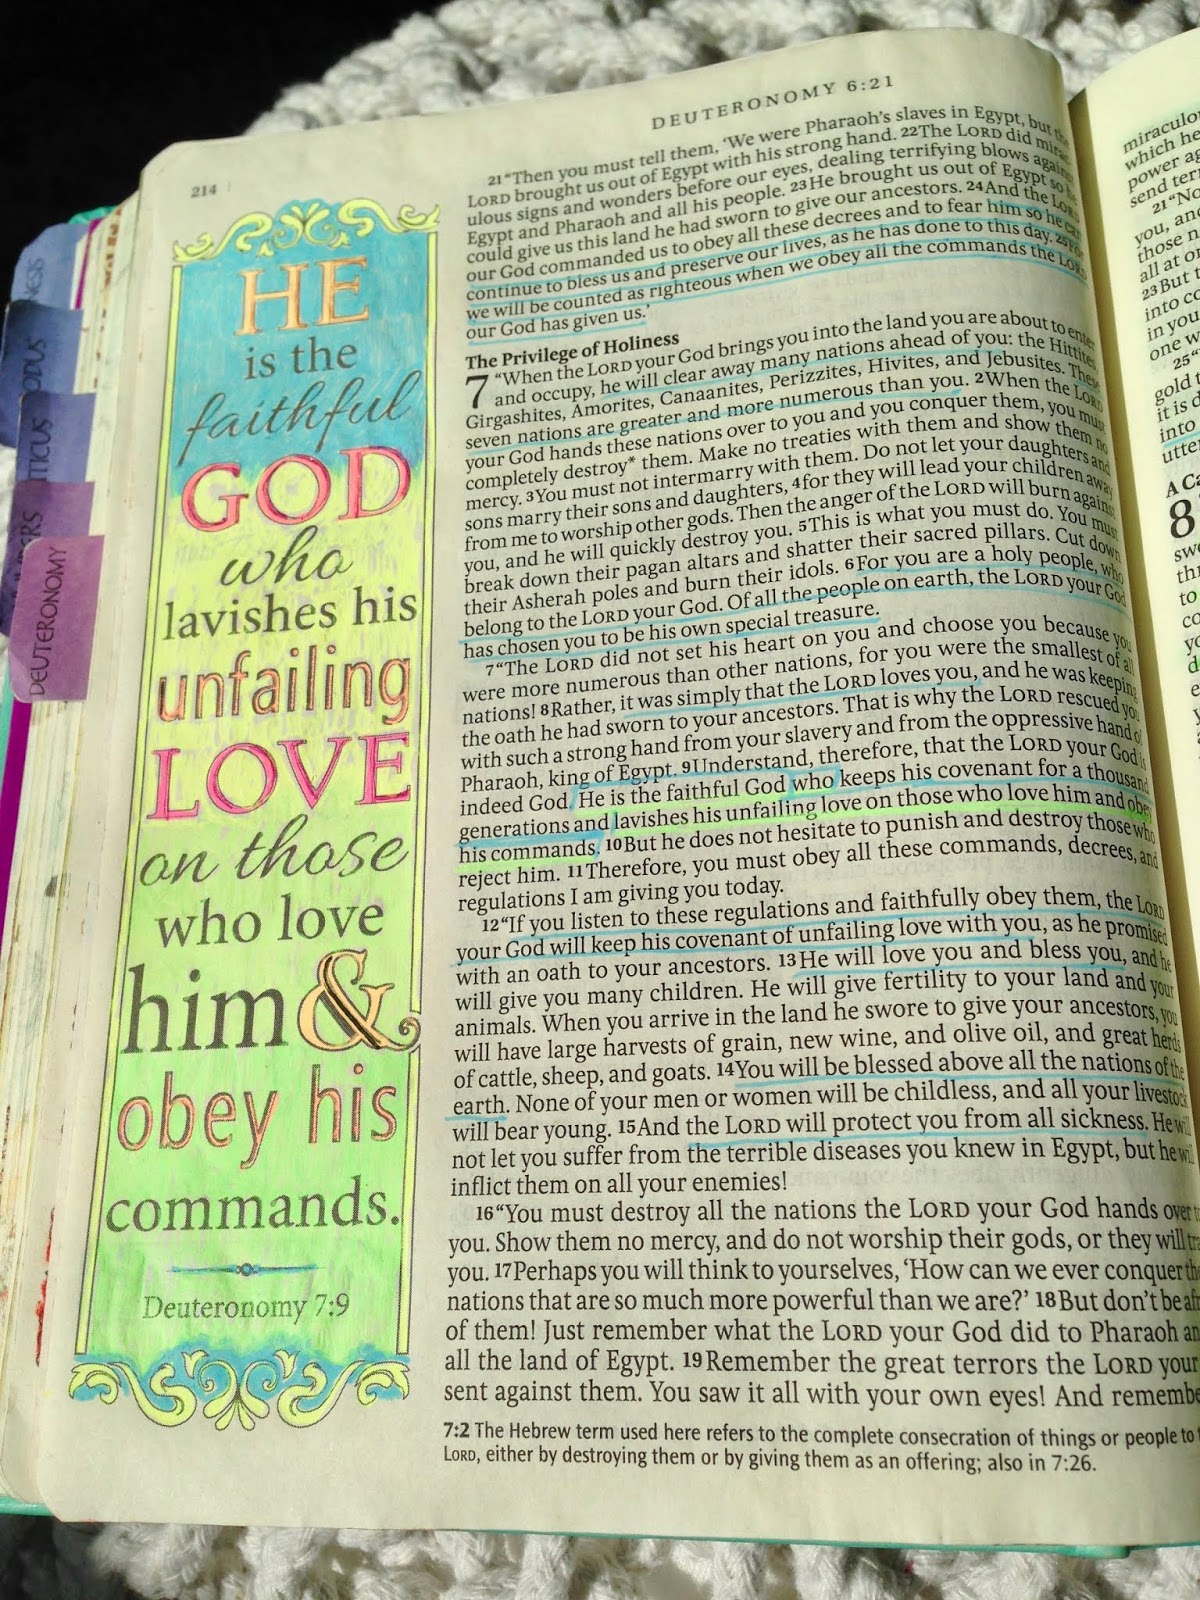 DEUTERONOMY 6:21
214
HE
is the
faithful
GOD
who
lavishes his
unfailing
LOVE
on those
who love
him &
obey his
commands.
Deuteronomy 7:9
ODUS
TICUS
DEUTERONOMY
21“Then you must tell them, ‘We were Pharaoh’s slaves in Egypt, but the
LORD brought us out of Egypt with his strong hand. 22The LORD did mirac-
ulous signs and wonders before our eyes, dealing terrifying blows against
Egypt and Pharaoh and all his people. 23He brought us out of Egypt so he
could give us this land he had sworn to give our ancestors. 24And the LORD
our God commanded us to obey all these decrees and to fear him so he can
continue to bless us and preserve our lives, as he has done to this day. 25For
we will be counted as righteous when we obey all the commands the LORD
our God has given us.’
The Privilege of Holiness
7 “When the LORD your God brings you into the land you are about to enter
and occupy, he will clear away many nations ahead of you: the Hittites,
Girgashites, Amorites, Canaanites, Perizzites, Hivites, and Jebusites. These
seven nations are greater and more numerous than you. 2When the LORD
your God hands these nations over to you and you conquer them, you must
completely destroy* them. Make no treaties with them and show them no
mercy. 3You must not intermarry with them. Do not let your daughters and
sons marry their sons and daughters, 4for they will lead your children away
from me to worship other gods. Then the anger of the LORD will burn against
you, and he will quickly destroy you. 5This is what you must do. You must
break down their pagan altars and shatter their sacred pillars. Cut down
their Asherah poles and burn their idols. 6For you are a holy people, who
belong to the LORD your God. Of all the people on earth, the LORD your God
has chosen you to be his own special treasure.
7“The LORD did not set his heart on you and choose you because you
were more numerous than other nations, for you were the smallest of all
nations! 8Rather, it was simply that the LORD loves you, and he was keeping
the oath he had sworn to your ancestors. That is why the LORD rescued you
with such a strong hand from your slavery and from the oppressive hand of
Pharaoh, king of Egypt. 9Understand, therefore, that the LORD your God is
indeed God. He is the faithful God who keeps his covenant for a thousand
generations and lavishes his unfailing love on those who love him and obey
his commands. 10But he does not hesitate to punish and destroy those who
reject him. 11Therefore, you must obey all these commands, decrees, and
regulations I am giving you today.
12“If you listen to these regulations and faithfully obey them, the LORD
your God will keep his covenant of unfailing love with you, as he promised
with an oath to your ancestors. 13He will love you and bless you, and he
will give you many children. He will give fertility to your land and your
animals. When you arrive in the land he swore to give your ancestors, you
will have large harvests of grain, new wine, and olive oil, and great herds
of cattle, sheep, and goats. 14You will be blessed above all the nations of the
earth. None of your men or women will be childless, and all your livestock
will bear young. 15And the LORD will protect you from all sickness. He will
not let you suffer from the terrible diseases you knew in Egypt, but he will
inflict them on all your enemies!
16“You must destroy all the nations the LORD your God hands over
you. Show them no mercy, and do not worship their gods, or they will
you. 17Perhaps you will think to yourselves, ‘How can we ever conquer
nations that are so much more powerful than we are?’ 18But don’t be
of them! Just remember what the LORD your God did to Pharaoh
all the land of Egypt. 19Remember the great terrors the LORD your
sent against them. You saw it all with your own eyes! And
7:2 The Hebrew term used here refers to the complete consecration of things or people to
LORD, either by destroying them or by giving them as an offering; also in 7:26.
which he
power
send
21“No
you,
those
all at
23But
into
in you
one
25“
gold
it is
into
8
to